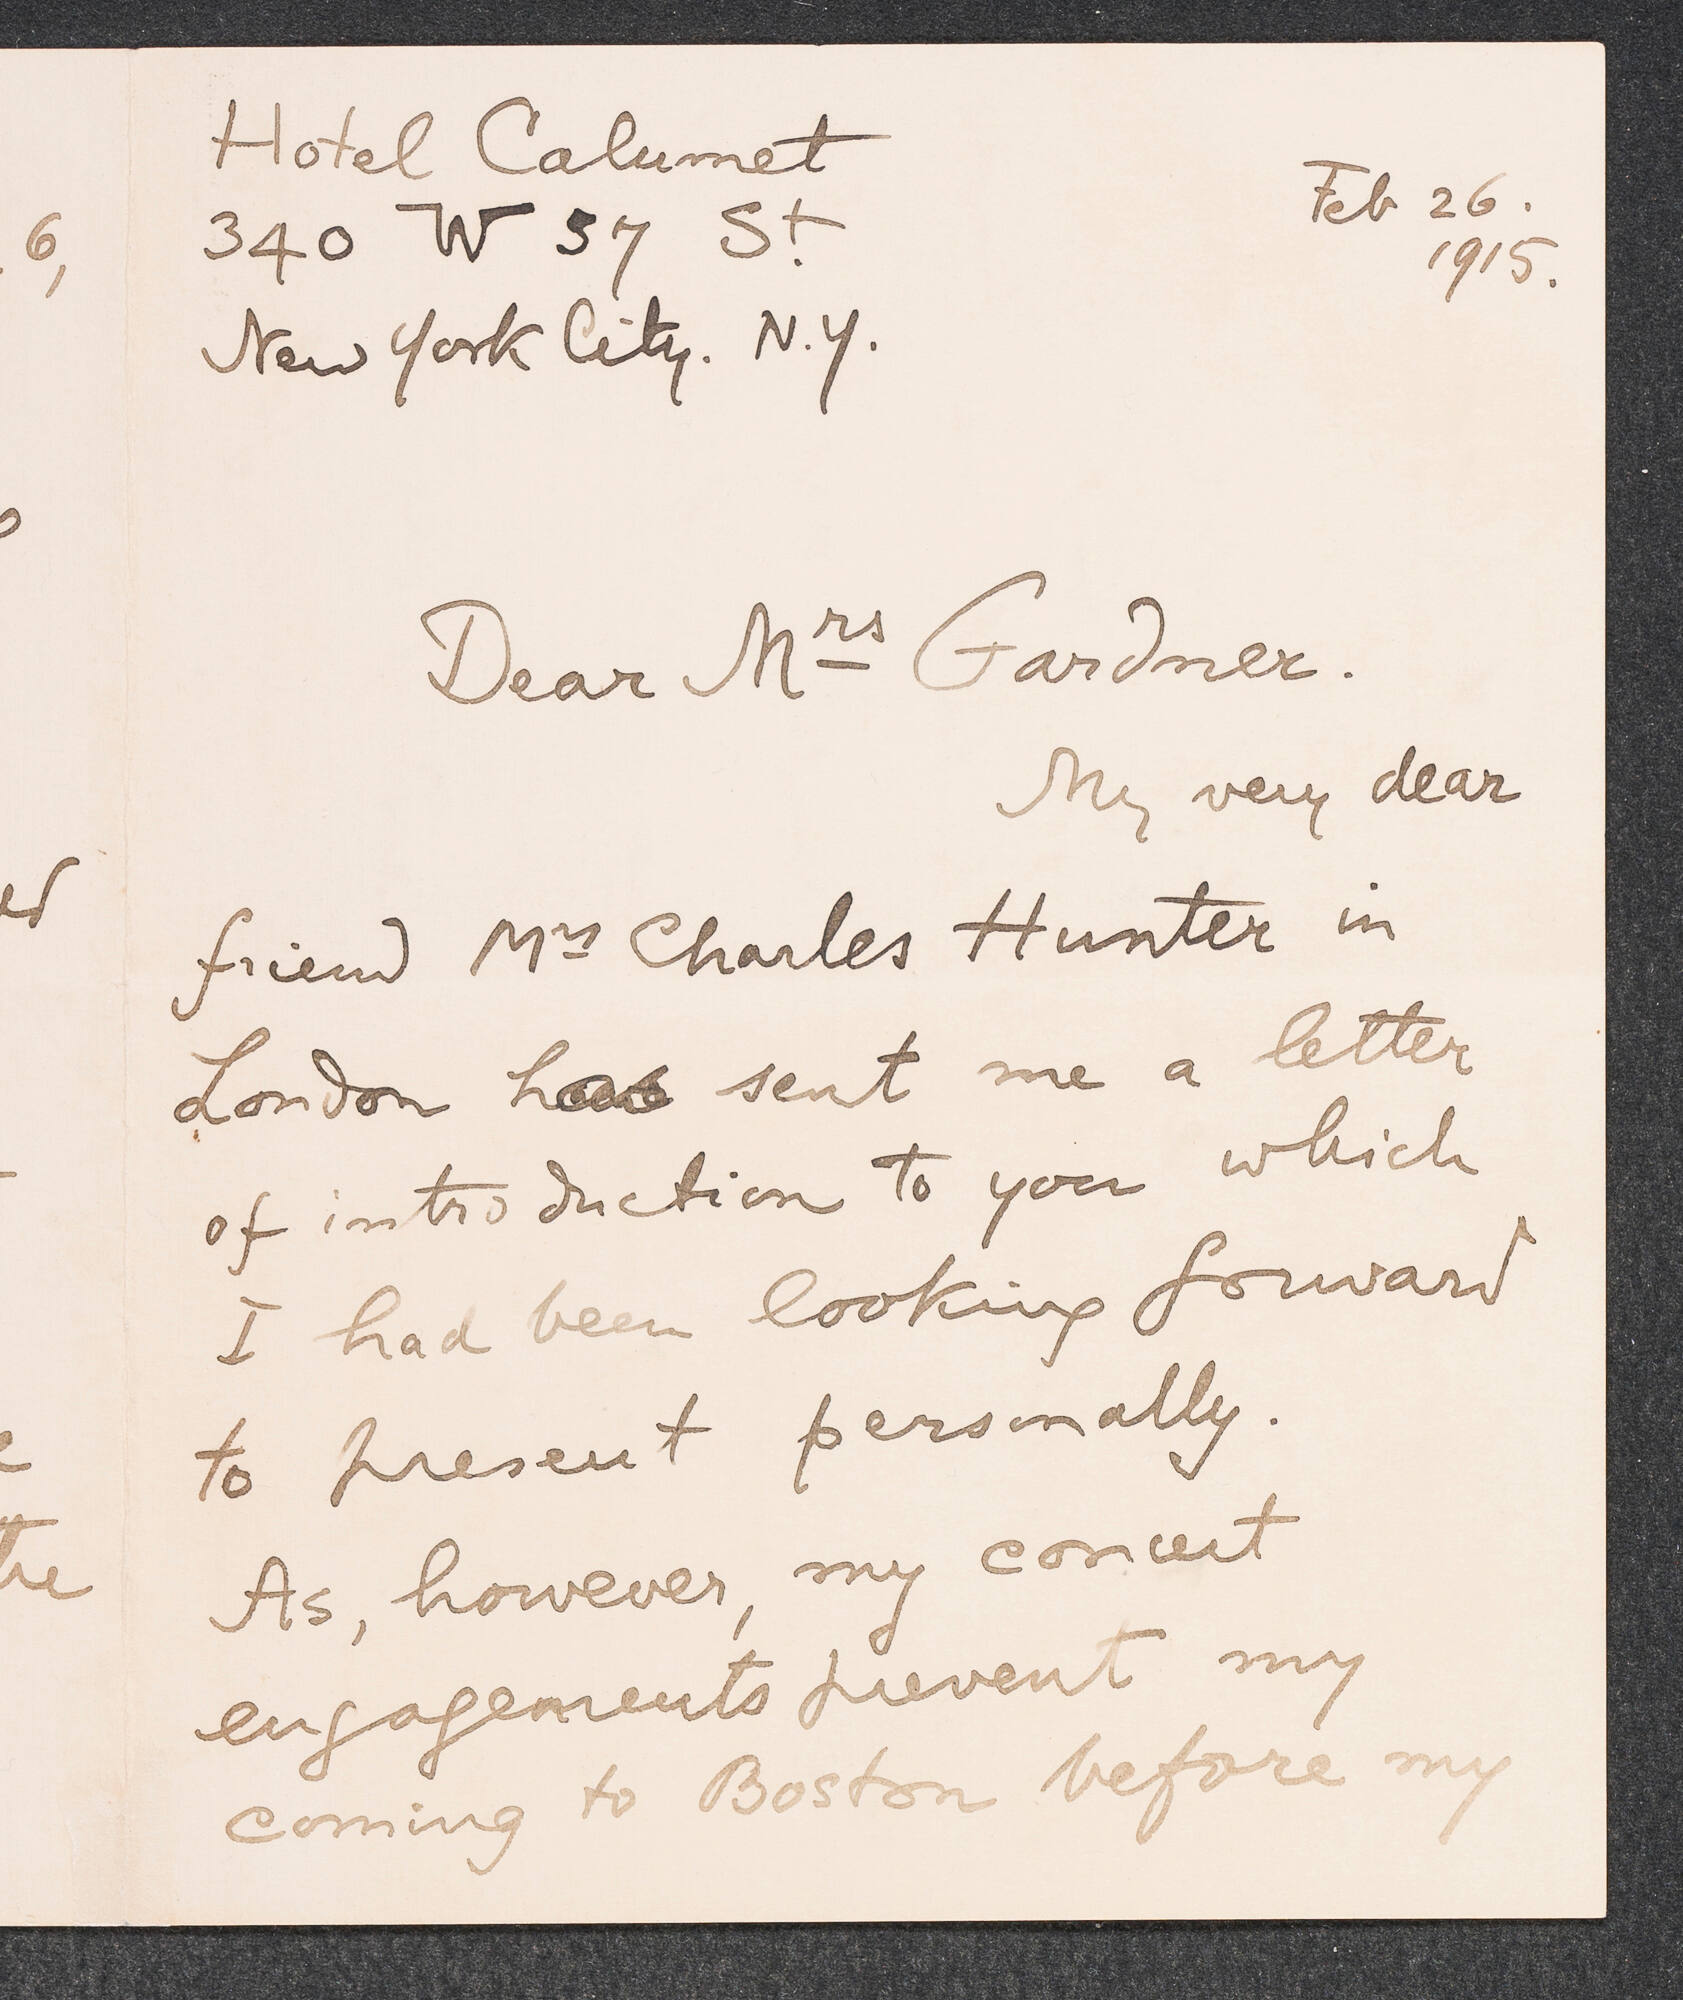 6,
Hotel Calumet
Feb 26.
340 W 57 St.
1915.
New York City. N.Y.
Dear Mrs Gardner.
My very dear
friend Mrs Charles Hunter in
London has sent me a letter
of introduction to you which
I had been looking forward
to present personally.
As, however, my concert
engagements prevent my
coming to Boston before my